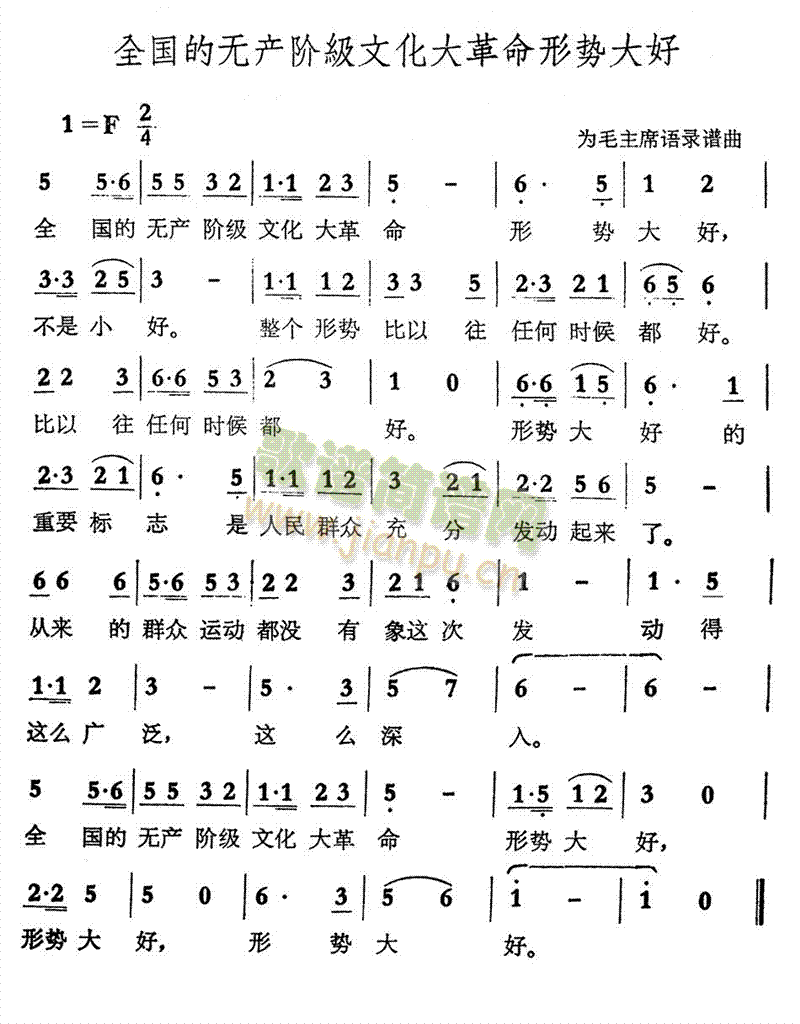 全国的无产阶級文化大革命形势大好
1=F 2/4
为毛主席语录谱曲
5 5·6 | 5 5 3 2 | 1·1 2 3 | 5 - | 6· 5 | 1 2 |
全 国的 无产 阶级 文化 大革 命 形 势 大 好，
3·3 2 5 | 3 - | 1·1 1 2 | 3 3 5 | 2·3 2 1 | 6 5 6 |
不是 小 好。 整个 形势 比以 往 任何 时候 都 好。
2 2 3 | 6·6 5 3 | 2 3 | 1 0 | 6·6 1 5 | 6· 1 |
比以 往 任何 时候 都 好。 形势 大 好 的
2·3 2 1 | 6· 5 | 1·1 1 2 | 3 2 1 | 2·2 5 6 | 5 - |
重要 标 志 是 人民 群众 充 分 发动 起来 了。
6 6 6 | 5·6 5 3 | 2 2 3 | 2 1 6 | 1 - | 1· 5 |
从来 的 群众 运动 都没 有 象这 次 发 动 得
1·1 2 | 3 - | 5· 3 | 5 7 | 6 - | 6 - |
这么 广 泛， 这 么 深 入。
5 5·6 | 5 5 3 2 | 1·1 2 3 | 5 - | 1·5 1 2 | 3 0 |
全 国的 无产 阶级 文化 大革 命 形势 大 好，
2·2 5 | 5 0 | 6· 3 | 5 6 | 1 - | 1 0 ‖
形势 大 好， 形 势 大 好。
歌谱简谱网
www.jianpu.cn